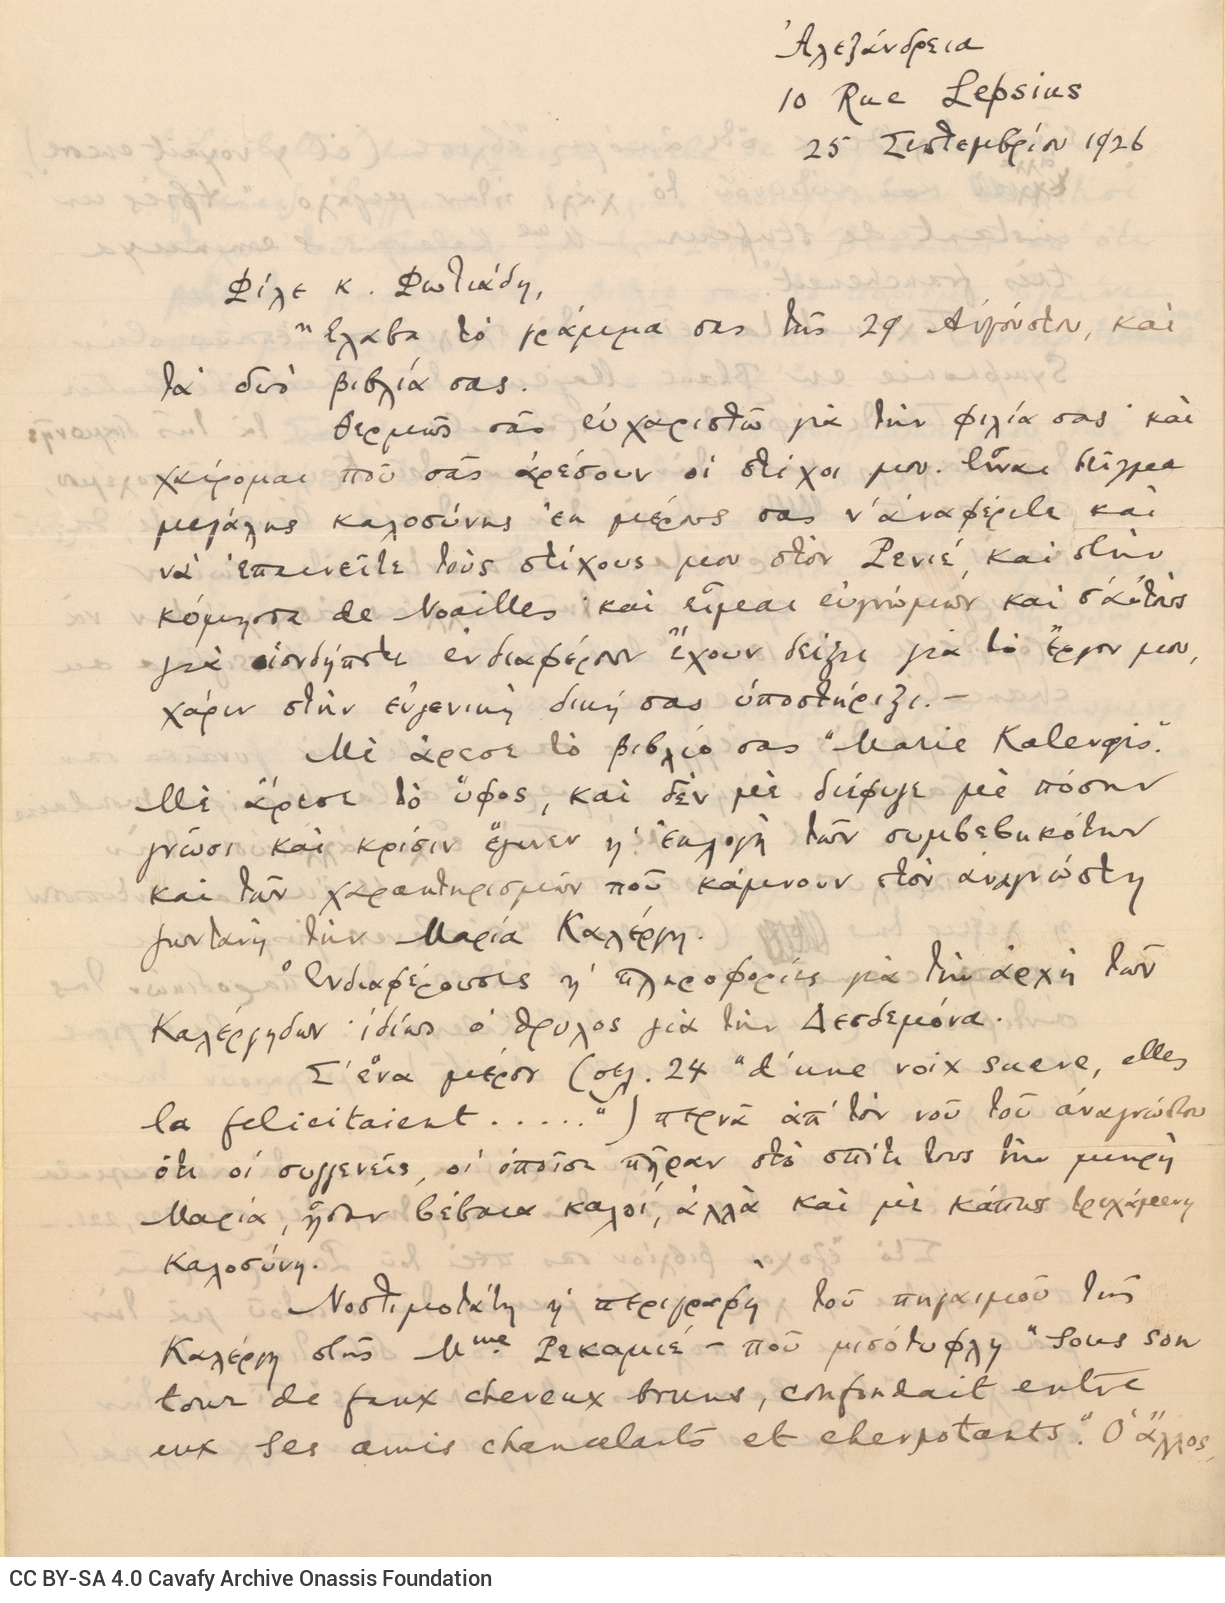 Ἀλεξάνδρεια
10 Rue Lepsius
25 Σεπτεμβρίου 1926
Φίλε κ. Φωτιάδη,
Ἔλαβα τὸ γράμμα σας τῆς 29 Αὐγούστου, καὶ
τὰ δυὸ βιβλία σας.
Θερμῶς σᾶς εὐχαριστῶ γιὰ τὴν φιλία σας· καὶ
χαίρομαι ποῦ σᾶς ἀρέσουν οἱ στίχοι μου. Εἶναι δεῖγμα
μεγάλης καλοσύνης ἐκ μέρους σας ν' ἀναφέρετε καὶ
νὰ ἐπαινεῖτε τοὺς στίχους μου στὸν Ρενιέ, καὶ στὴν
κόμησσα de Noailles· καὶ εἶμαι εὐγνώμων καὶ σ' αὐτοὺς
γιὰ οἱονδήποτε ἐνδιαφέρον ἔχουν δείξει γιὰ τὸ ἔργον μου,
χάριν στὴν εὐγενικὴ δική σας ὑποστήριξι.—
Μὲ ἄρεσε τὸ βιβλίο σας "Marie Kalergis".
Μὲ ἄρεσε τὸ ὕφος, καὶ δὲν μὲ διέφυγε μὲ πόσην
γνῶσι καὶ κρίσιν ἔγινεν ἡ ἐκλογὴ τῶν συμβεβηκότων
καὶ τῶν χαρακτηρισμῶν ποῦ κάμνουν στὸν ἀναγνώστη
ζωντανὴ τὴν Μαρία Καλέργη.
Ἐνδιαφέρουσες ἡ πληροφορίες γιὰ τὴν ἀρχὴ τῶν
Καλέργηδων· ἰδίως ὁ θρύλος γιὰ τὴν Δεσδεμόνα.
Σ' ἕνα μέρος (σελ. 24 "d'une voix suave, elles
la felicitaient....." ) περνᾶ ἀπ' τὸν νοῦ τοῦ ἀναγνώστου
ὅτι οἱ συγγενεῖς, οἱ ὁποῖοι πῆραν στὸ σπίτι τους τὴν μικρὴ
Μαρία, ἦσαν βέβαια καλοί, ἀλλὰ καὶ μὲ κάπως
καλοσύνη.
Νοστιμοτάτη ἡ περιγραφὴ τοῦ πηγαιμοῦ τῆς
Καλέργη στῆς Mme Ρεκαμιέ — ποῦ μισότυφλη "sous son
tour de faux cheveux bruns, confondait entre
eux ses amis chancelants et chevrotants". Ὁ ἄλλος,
CC BY-SA 4.0 Cavafy Archive Onassis Foundation